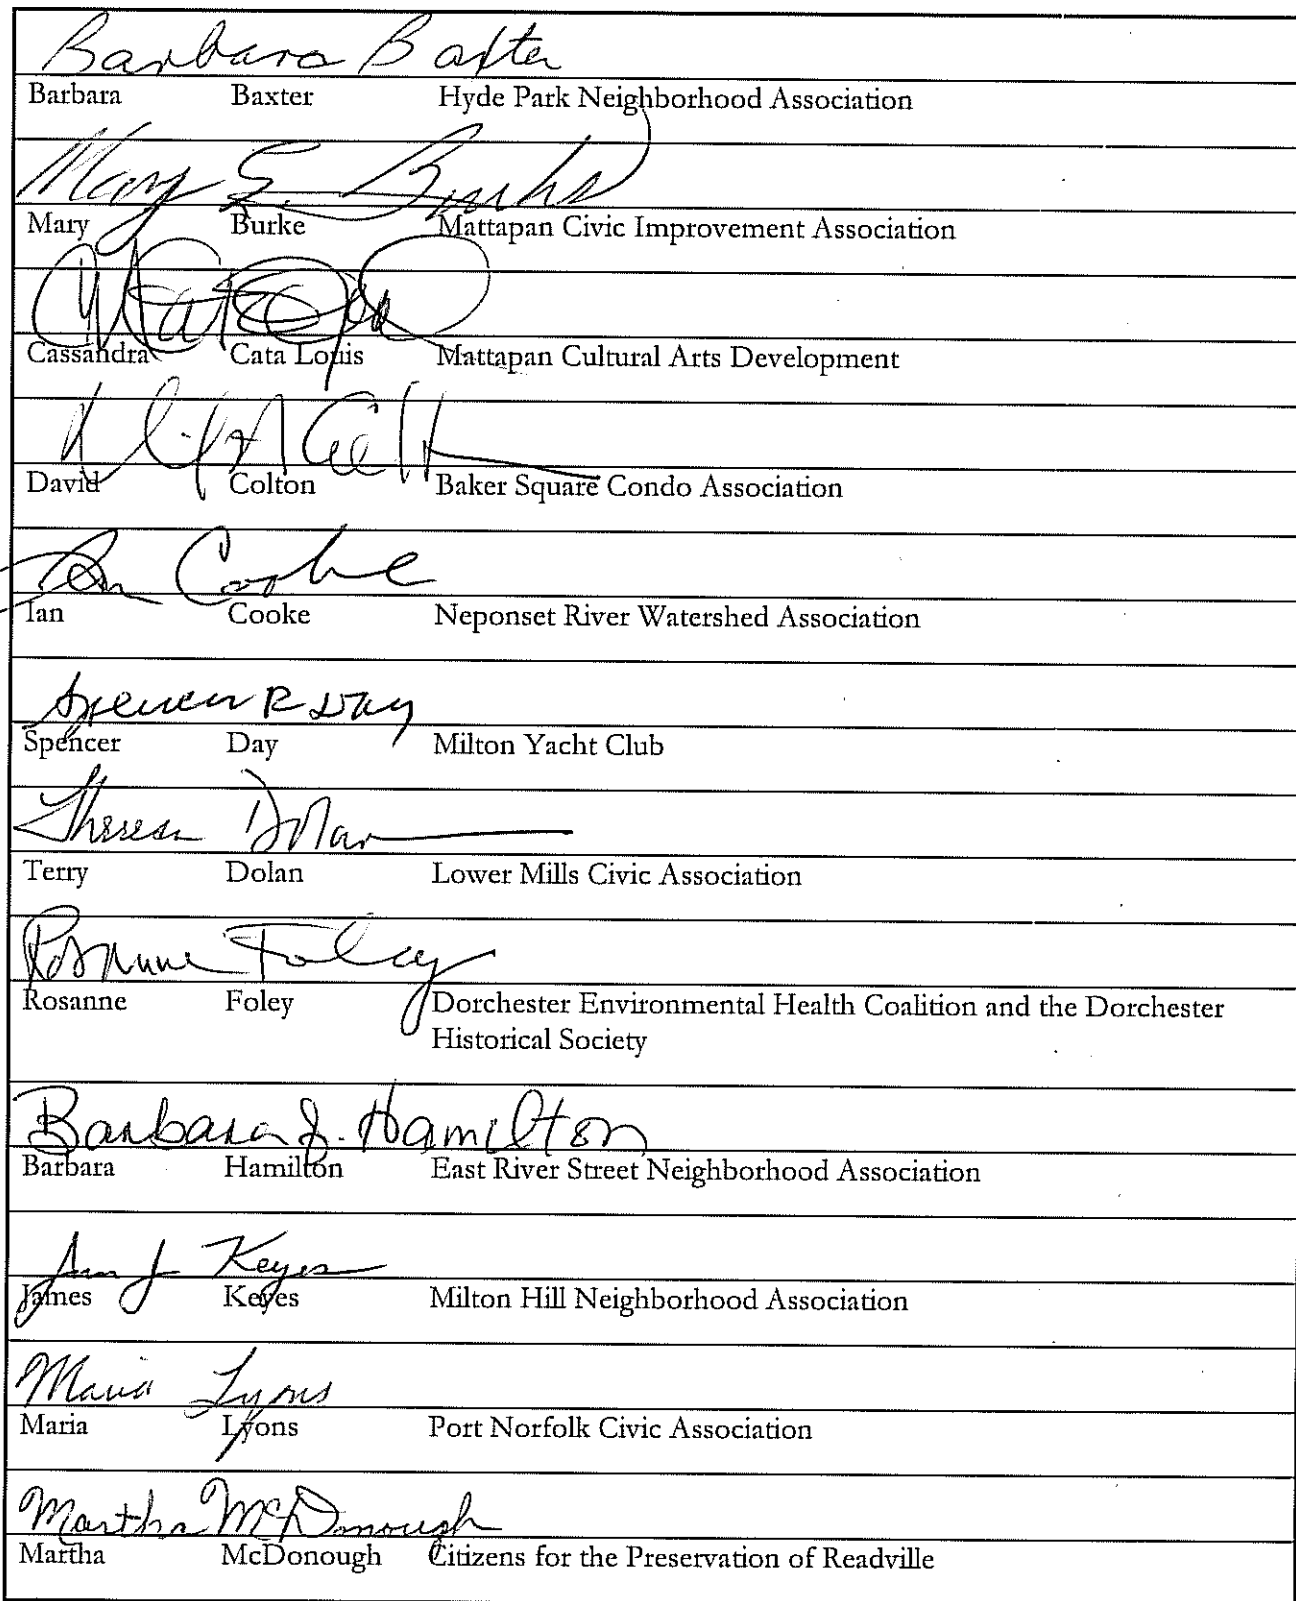 Barbara Baxter
Barbara Baxter Hyde Park Neighborhood Association
Mary E. Burke
Mary Burke Mattapan Civic Improvement Association
Cassandra Cata Louis Mattapan Cultural Arts Development
David Colton Baker Square Condo Association
Ian Cooke
Ian Cooke Neponset River Watershed Association
Spencer R Day
Spencer Day Milton Yacht Club
Theresa Dolan
Terry Dolan Lower Mills Civic Association
Rosanne Foley
Rosanne Foley Dorchester Environmental Health Coalition and the Dorchester
Historical Society
Barbara J. Hamilton
Barbara Hamilton East River Street Neighborhood Association
J Keyes
James Keyes Milton Hill Neighborhood Association
Maria Lyons
Maria Lyons Port Norfolk Civic Association
Martha McDonough
Martha McDonough Citizens for the Preservation of Readville